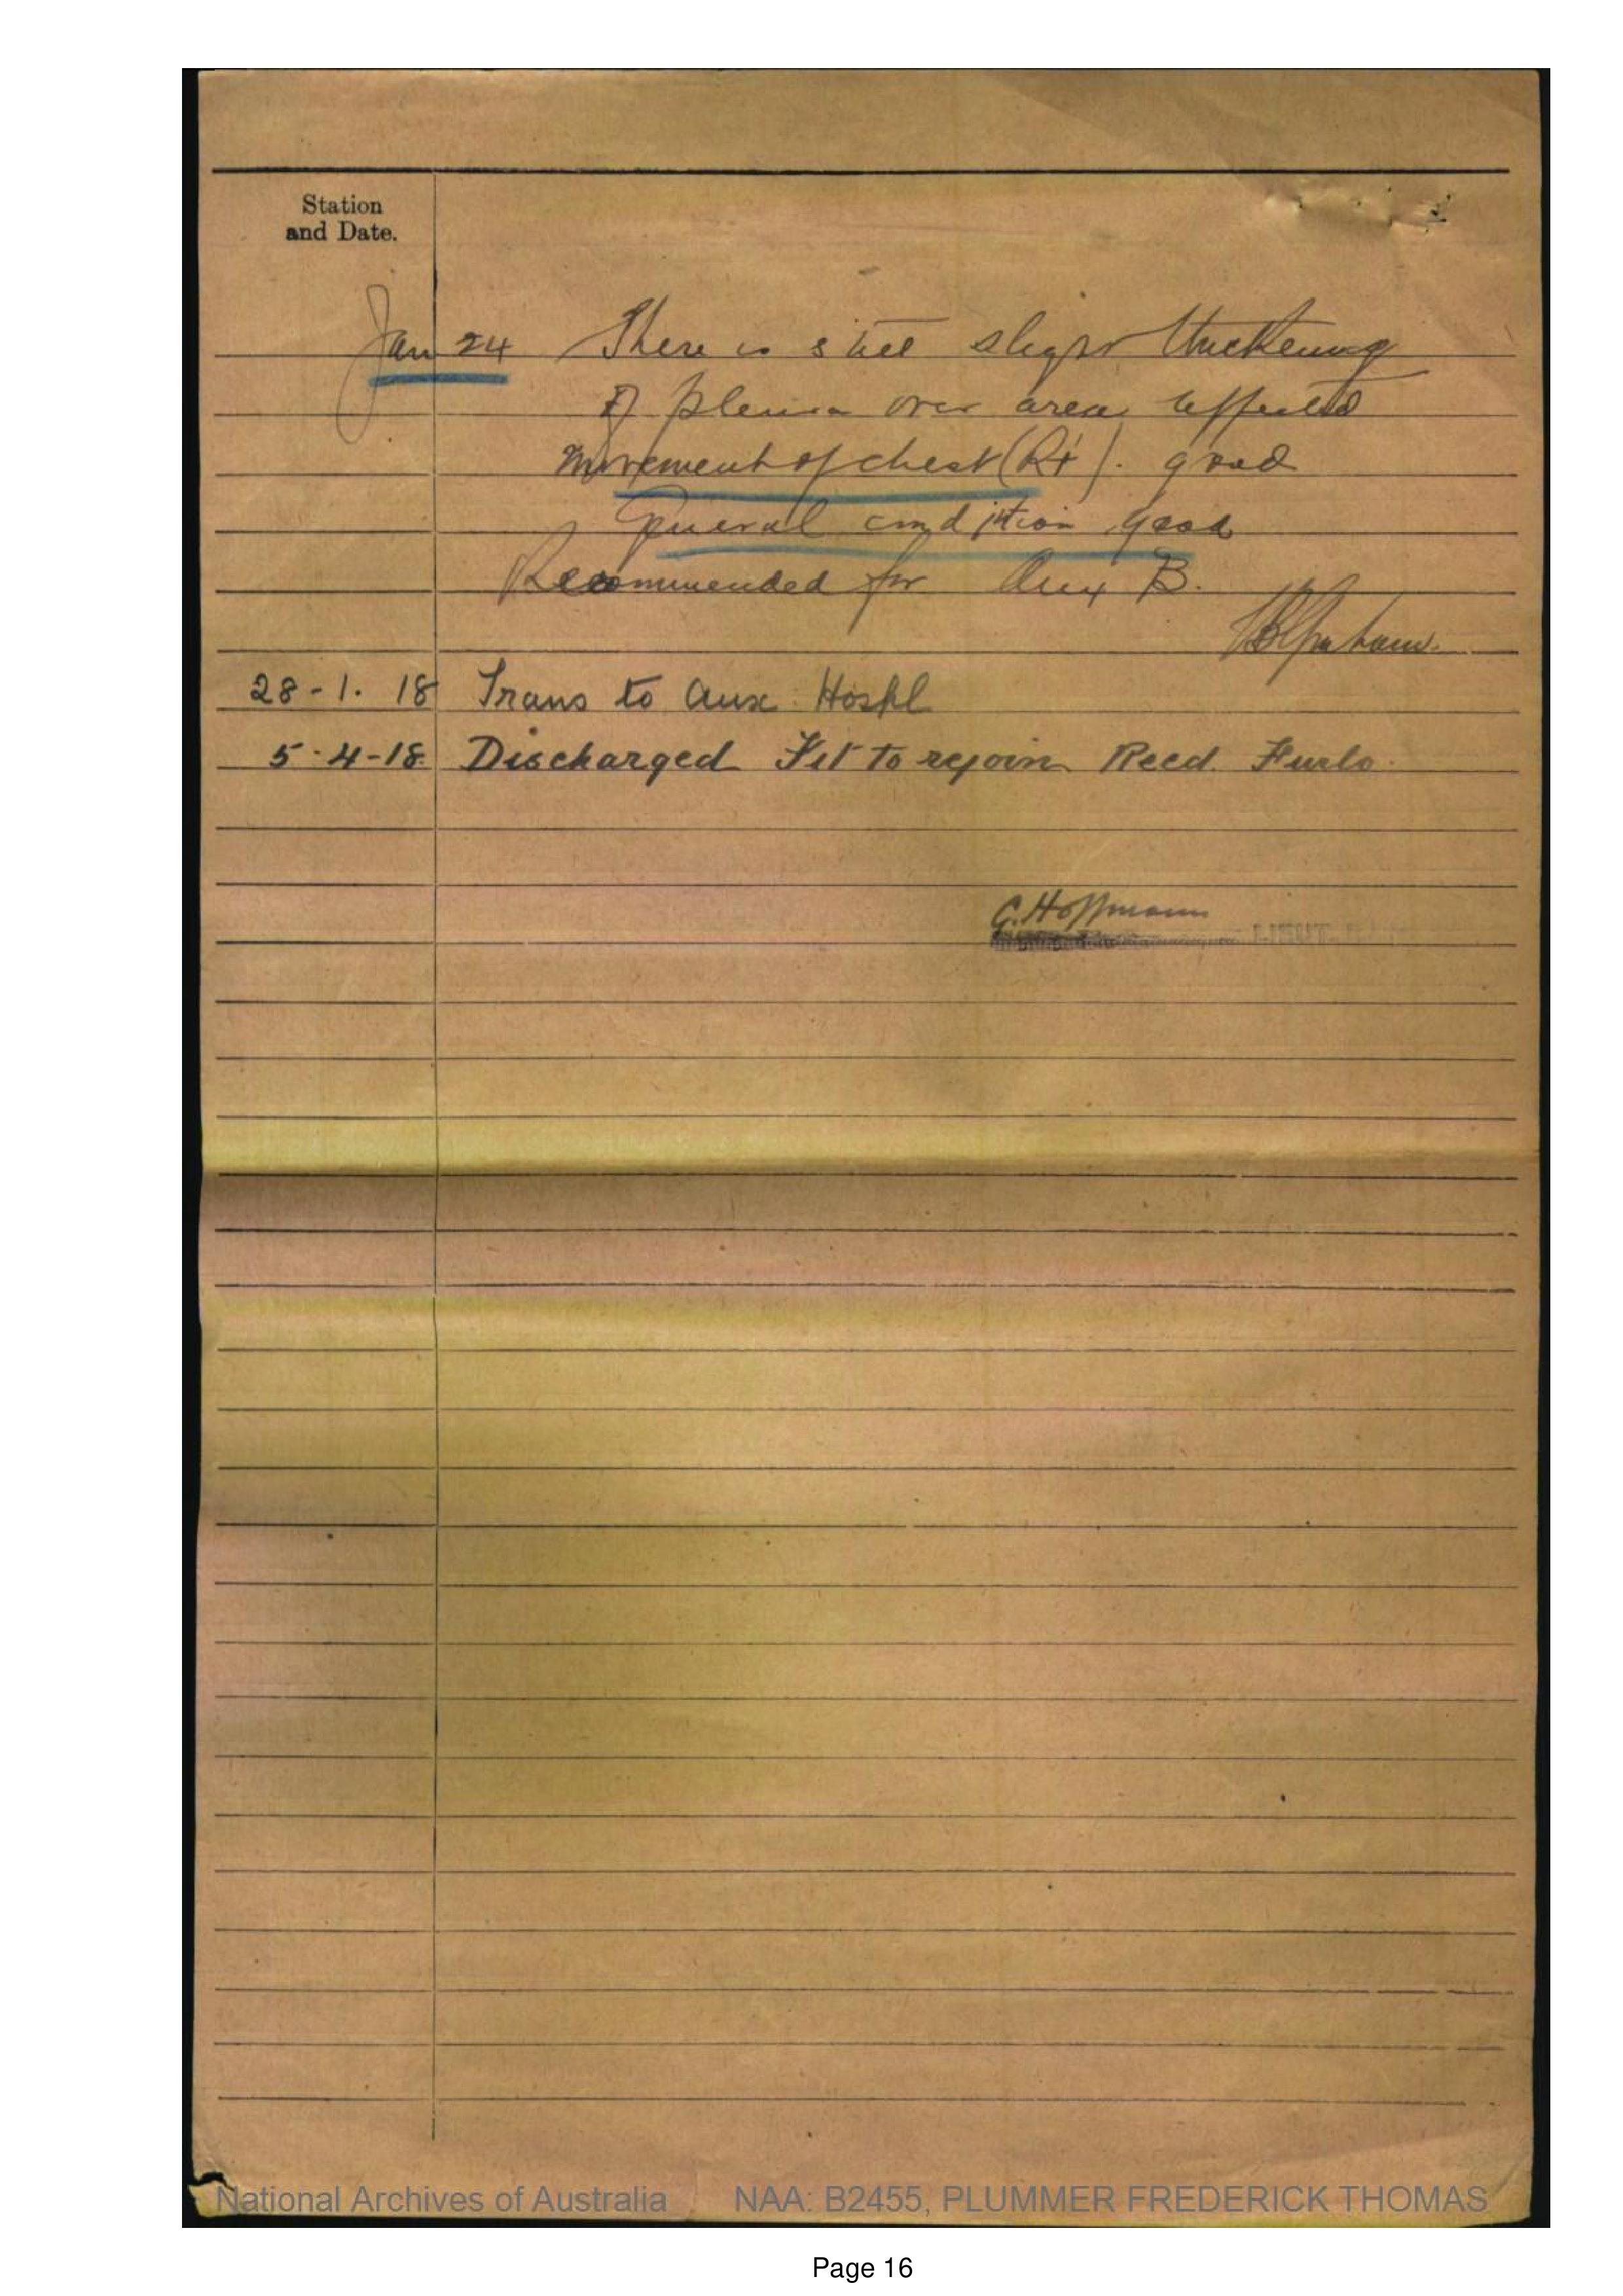 Station
and Date.
Jan 24 There is still slight thickening
of pleura over area affected
Movement of chest (Rt). good
General condition good
Recommended for Aux B.
28-1. 18 Trans to Aux. Hospl
5-4-18. Discharged Fit to rejoin Recd. Furlo.
G. Hoffmann
LIEUT.
National Archives of Australia NAA: B2455, PLUMMER FREDERICK THOMAS
Page 16